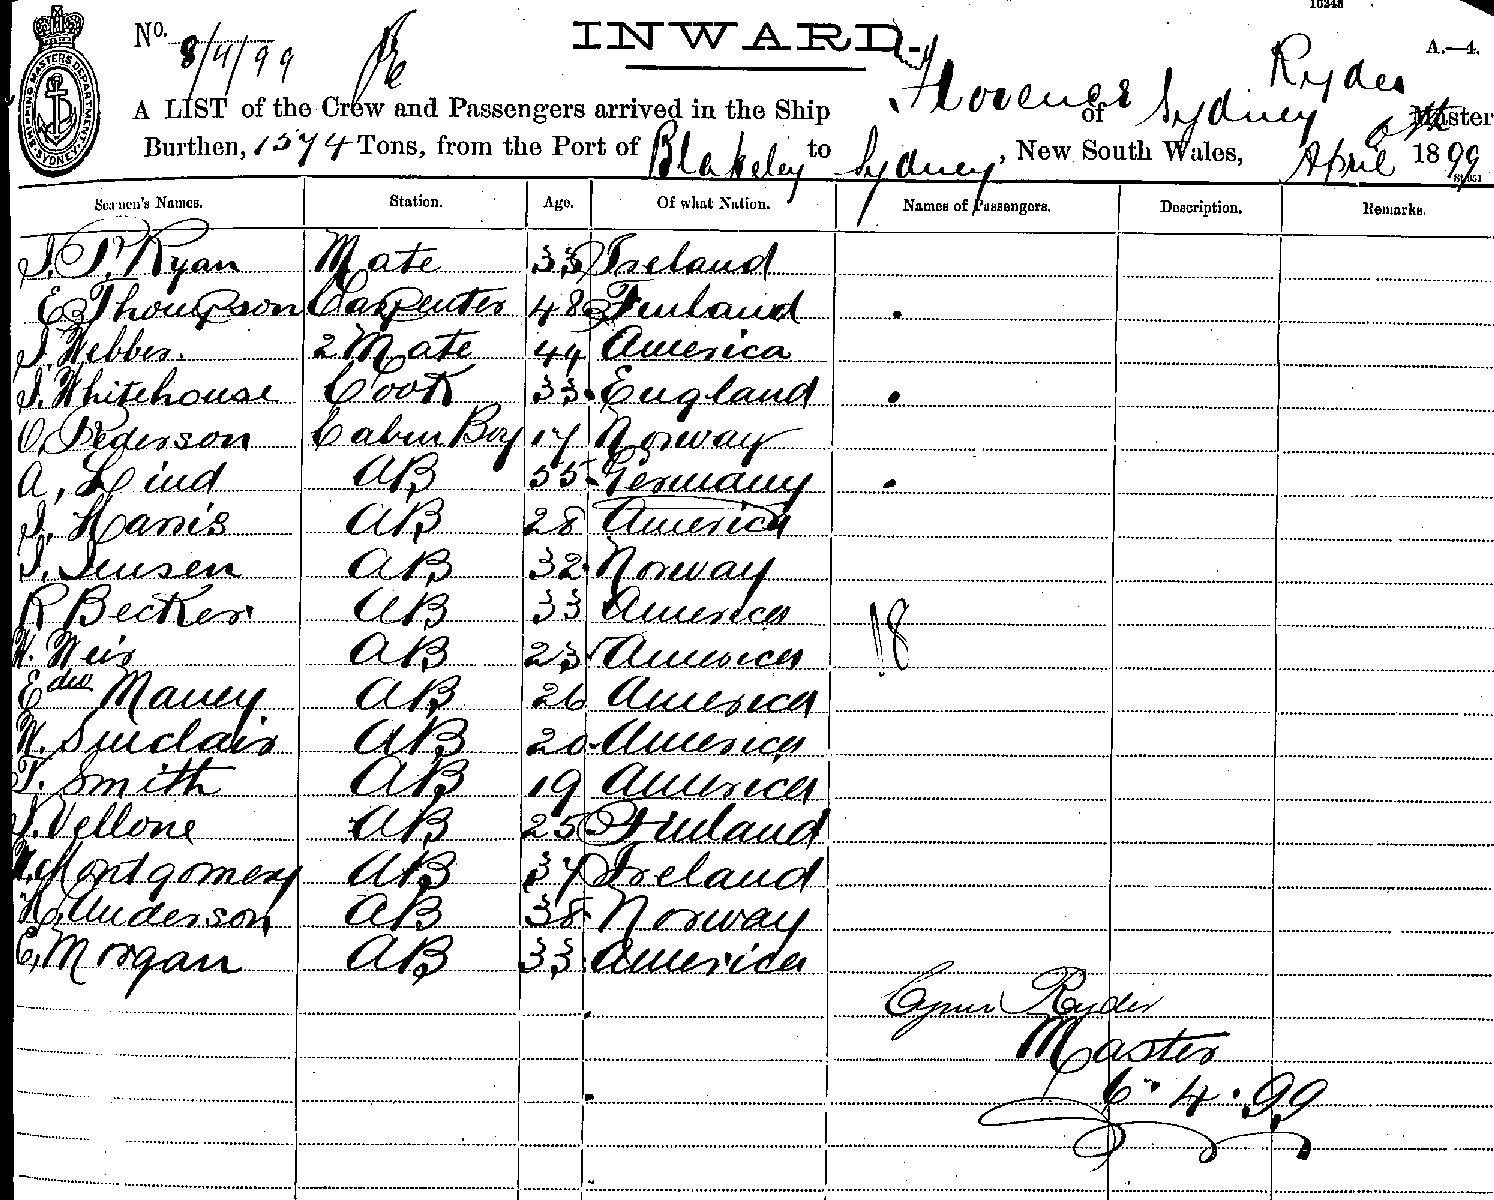 10348
No. 8/4/99
INWARD.
A.—4.
A LIST of the Crew and Passengers arrived in the Ship Florence of Sydney Ryder Master
Burthen, 1574 Tons, from the Port of Blakeley to Sydney, New South Wales, April 1899
Seamen's Names. Station. Age. Of what Nation. Names of Passengers. Description. Remarks.
J. P. Ryan Mate 33 Ireland
E Thompson Carpenter 48 Finland
J. Webber. 2 Mate 44 America
J. Whitehouse Cook 33 England
O. Pederson Cabin Boy 17 Norway
A, Lind AB 55 Germany
J. Harris AB 28 America
J. Jensen AB 32 Norway
R Becker AB 33 America
18
W. Weir AB 23 America
Edw Maney AB 26 America
W. Sinclair AB 20 America
T. Smith AB 19 America
J. Vellone AB 25 Finland
Montgomery AB 37 Ireland
Anderson AB 38 Norway
E, Morgan AB 33 America
Cyrus Ryder
Master
6.4.99